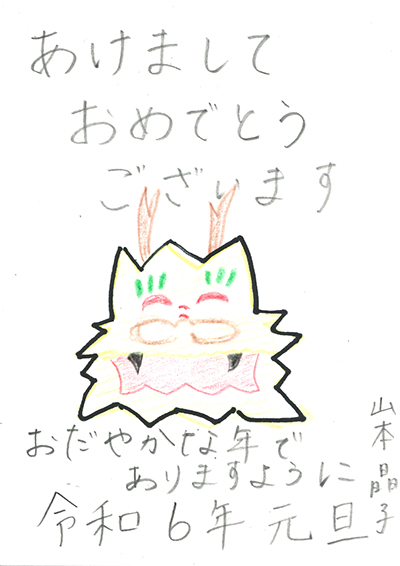 あけまして
おめでとう
ございます
おだやかな年で
ありますように
令和6年 元旦
山本 晶子